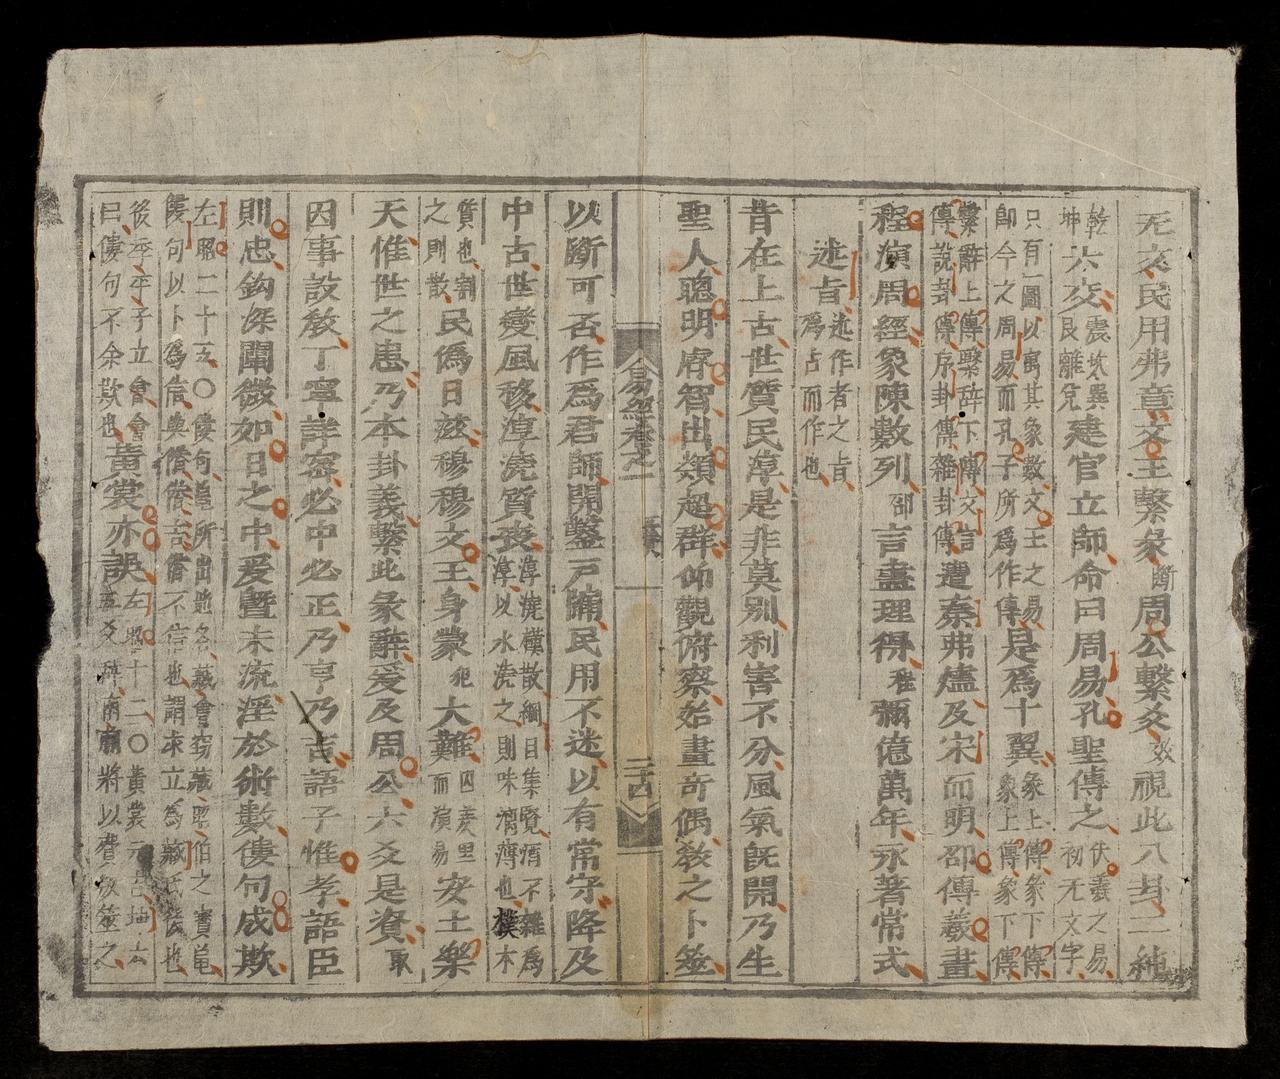 无文民用弗章文王繫彖斷周公繫爻效視此八卦二純
乾坤六交震坎巽艮離兌建官立師命曰周易孔聖傳之伏羲之易初无文字
只有一圖以寓其象數文王之易即今之周易而孔子所爲作傳是爲十翼彖上傳彖下傳象上傳象下傳
繫辭上傳繫辞下傳文言傳說卦傳序卦傳雜卦傳遭秦弗燼及宋而明邵傳羲畫
程演周經象陳數列邵言盡理得程彌億萬年永著常式
述旨述作者之旨爲占而作也
昔在上古世質民淳是非莫别利害不分風氣旣開乃生
聖人聰明睿智出類超群仰觀俯察始畫奇偶敎之卜筮
易經卷之一
二十六
以斷可否作爲君師開鑿戸牖民用不迷以有常守降及
中古世變風移淳澆質喪淳澆樸散綱目集覽酒不雜爲淳以水澆之則味漓薄也樸本
質也割之則散民偽日滋穆穆文王身蒙大難囚羑里而演易安土樂
天惟世之患乃本卦義繫此彖辭爰及周公六爻是資取
因事設敎丁寧詳密必中必正乃亨乃吉語子惟孝語臣
則忠鈎深闡微如日之中爰曁末流淫於術數僂句成欺
左昭二十五〇僂句龜所出地名臧會窃臧昭伯之寶龜僂句以卜爲信與僭僭吉僭不信也謂求立爲臧氏後也
後季平子立會會曰僂句不余欺也黃裳亦誤左昭十二〇黃裳元吉坤六五爻辞南蒯將以費叛筮之